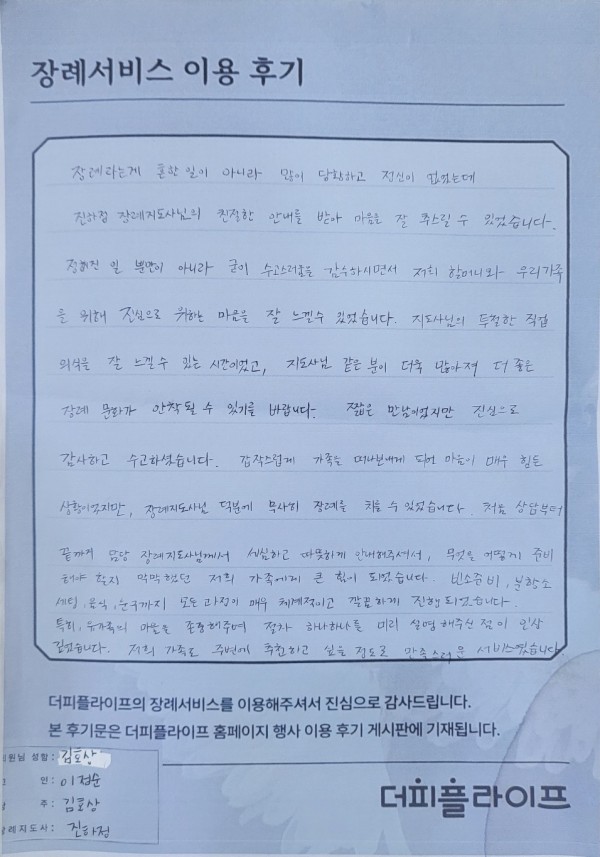 장례서비스 이용 후기
장례라는게 흔한 일이 아니라 많이 당황하고 정신이 없었는데
진하정 장례지도사님의 친절한 안내를 받아 마음을 잘 추스릴 수 있었습니다.
정해진 일 뿐만이 아니라 굳이 수고스러움을 감수하시면서 저희 할머니와 우리가족
을 위해 진심으로 위하는 마음을 잘 느낄수 있었습니다. 지도사님의 투철한 직업
의식을 잘 느낄 수 있는 시간이었고, 지도사님 같은 분이 더욱 많아져 더 좋은
장례 문화가 안착될 수 있기를 바랍니다. 짧은 만남이었지만 진심으로
감사하고 수고하셨습니다. 갑작스럽게 가족을 떠나보내게 되어 마음이 매우 힘든
상황이었지만, 장례지도사님 덕분에 무사히 장례를 치를 수 있었습니다. 처음 상담부터
끝까지 담당 장례지도사님께서 세심하고 따뜻하게 안내해주셔서, 무엇을 어떻게 준비
해야 할지 막막했던 저희 가족에게 큰 힘이 되었습니다. 빈소준비, 분향소
세팅, 음식, 운구까지 모든 과정이 매우 체계적이고 깔끔하게 진행되었습니다.
특히, 유가족의 마음을 존중해주며 절차 하나하나를 미리 설명해주신 점이 인상
깊었습니다. 저희 가족도 주변에 추천하고 싶을 정도로 만족스러운 서비스였습니다.
더피플라이프의 장례서비스를 이용해주셔서 진심으로 감사드립니다.
본 후기문은 더피플라이프 홈페이지 행사 이용 후기 게시판에 기재됩니다.
회원님 성함: 김호상
고 인: 이정순
상 주: 김호상
장례지도사: 진하정
더피플라이프